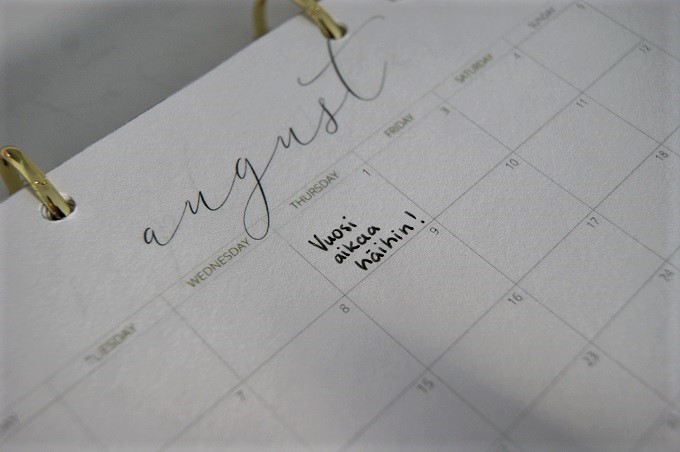 august
TUESDAY WEDNESDAY THURSDAY FRIDAY SATURDAY SUNDAY
1 3 4 5
Vuosi
aikaa
näihin!
7 8 9 10 11 12
15 16 17 18
23 24